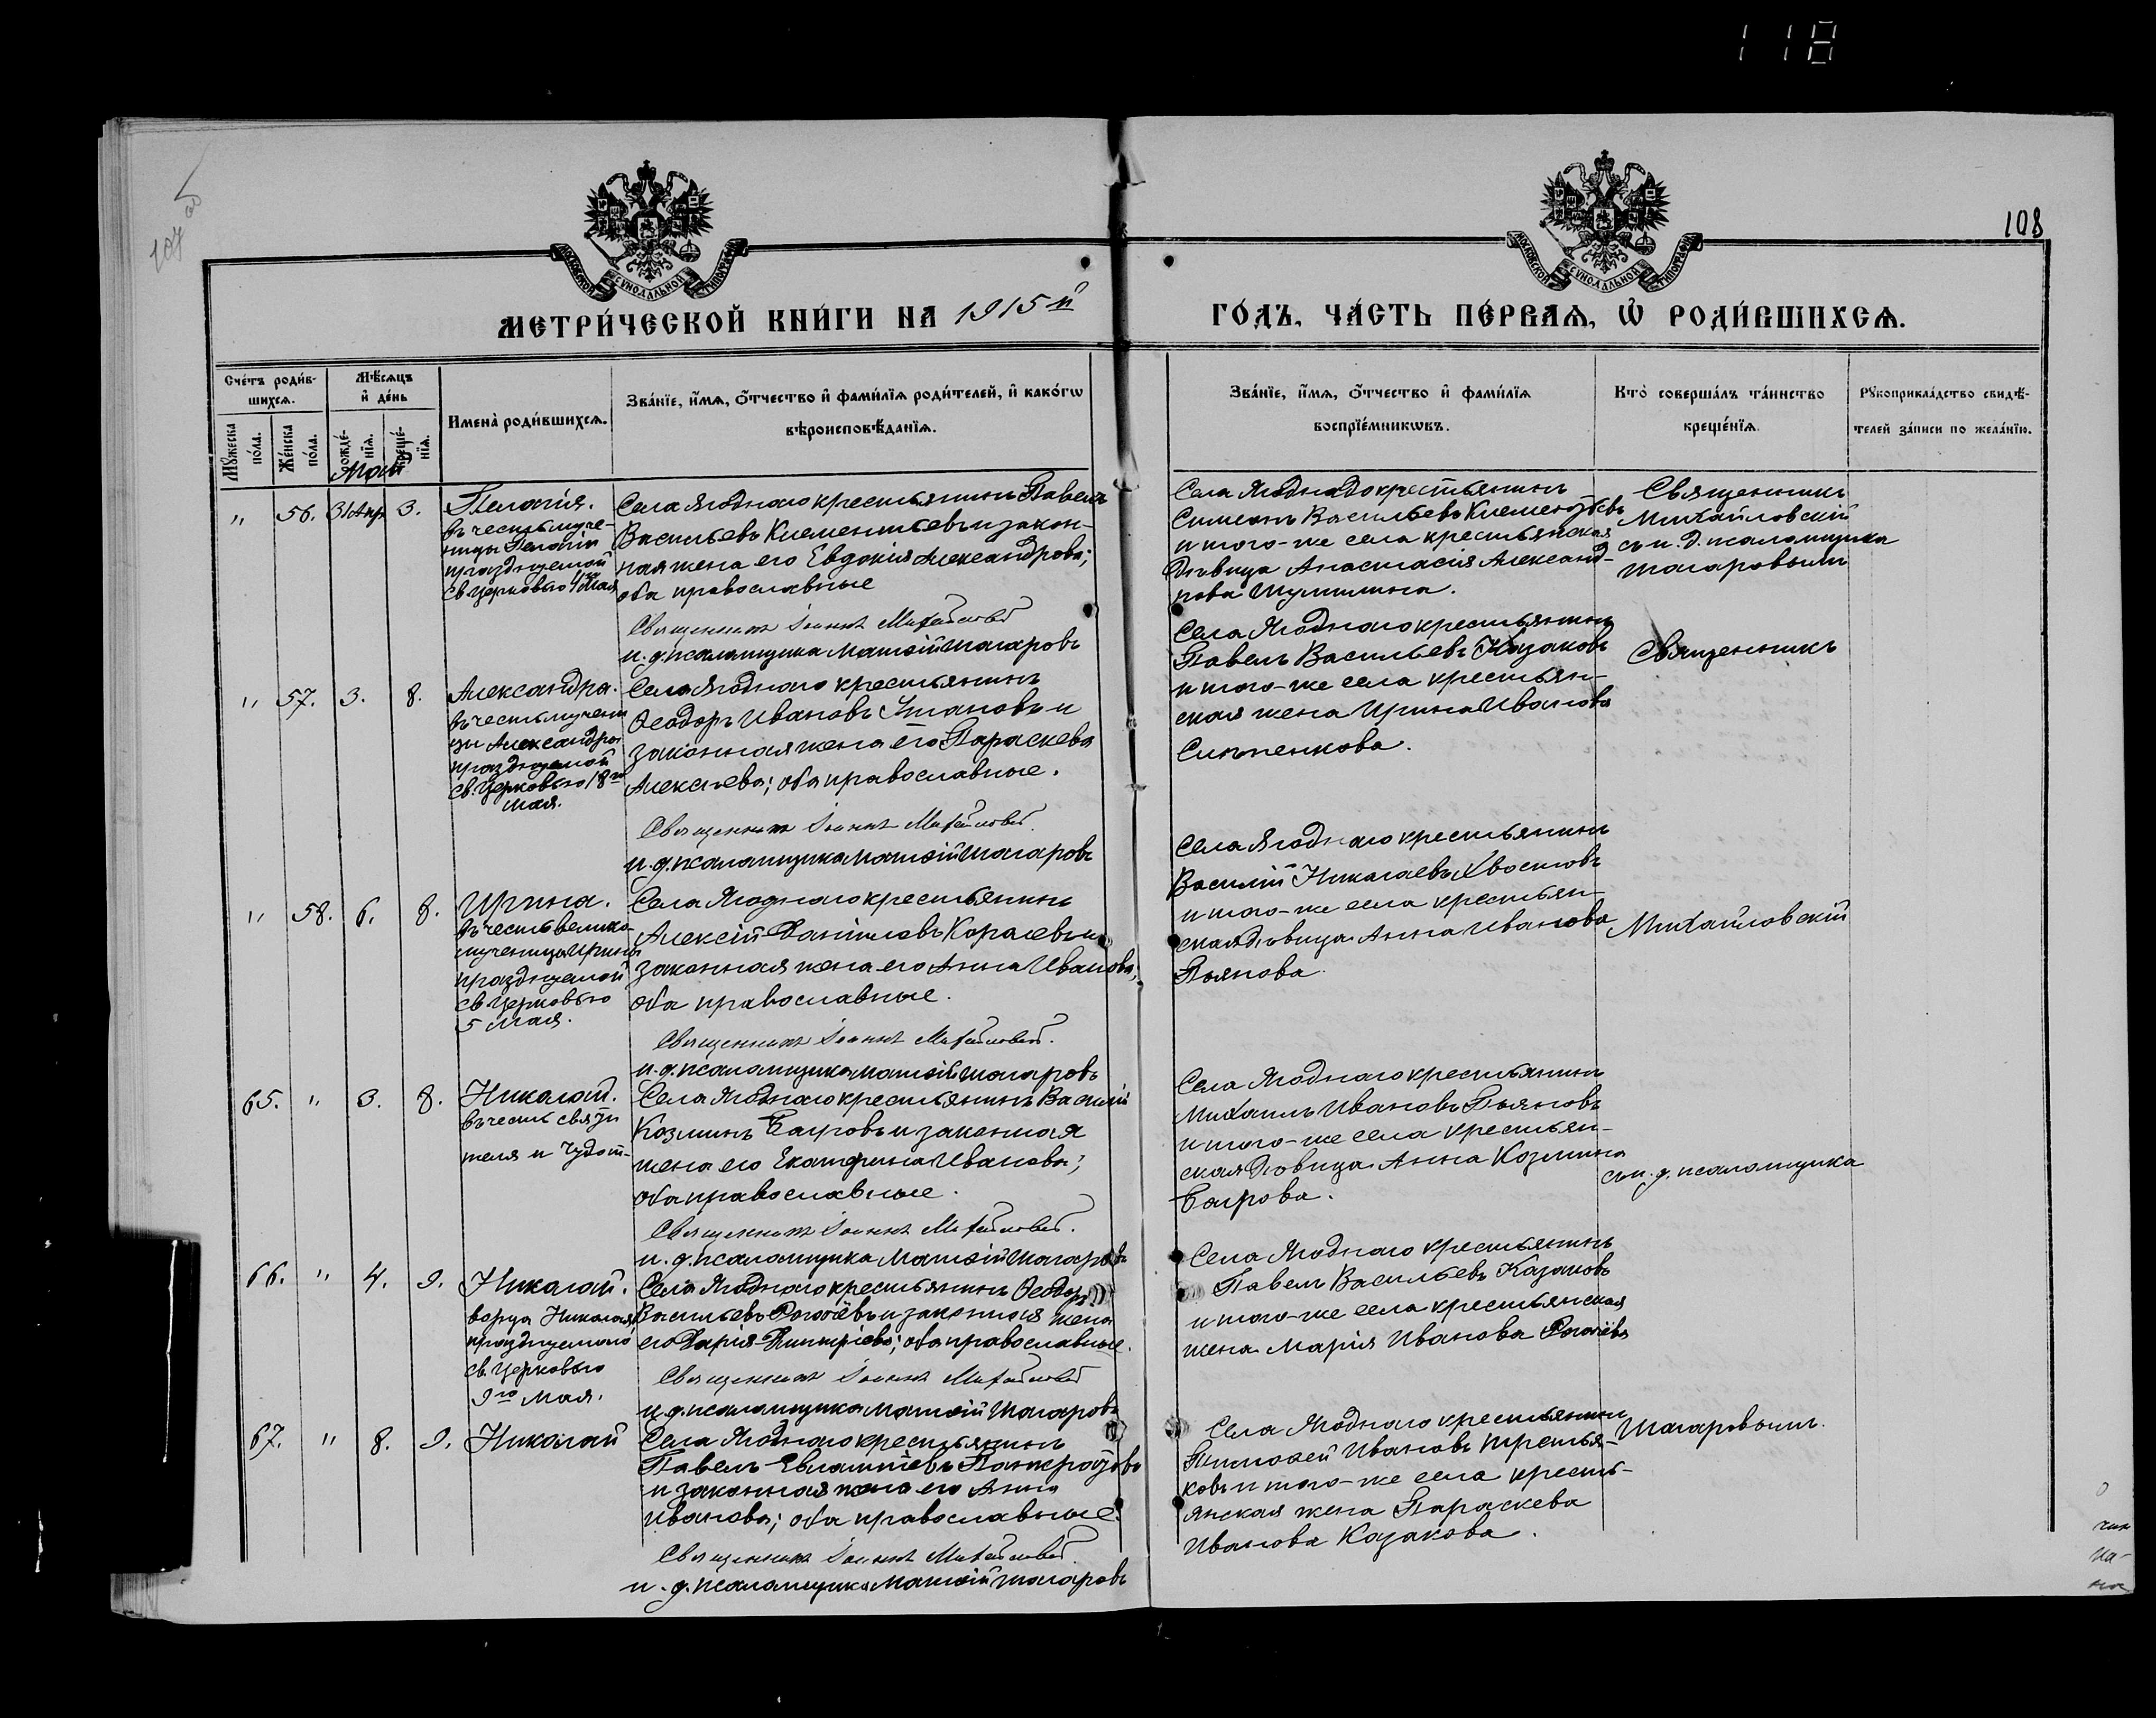 118
108
107
МОСКОВСКОЙ СѴНОДАЛЬНОЙ ТИПОГРАФІИ
МОСКОВСКОЙ СѴНОДАЛЬНОЙ ТИПОГРАФІИ
МЕТРИ́ЧЕСКОЙ КНИ́ГИ НА 1915й
ГО́ДЪ, ЧА́СТЬ ПЕ́РВАѦ, Ѽ РОДИ́ВШИХСѦ.
Сче́тъ роди́в-
шихсѧ.
Мꙋ́жеска
по́ла.
Же́нска
по́ла.
Мѣ́сѧцъ
и҆ де́нь
рожде́-
нїѧ.
креще́-
нїѧ.
Имена̀ роди́вшихсѧ.
Зва́нїе, и҆́мѧ, ѻ҆́тчество и҆ фами́лїѧ роди́телей, и҆ како́гѡ
вѣроисповѣ́данїѧ.
Зва́нїе, и҆́мѧ, ѻ҆́тчество и҆ фами́лїѧ
воспрїе́мникѡвъ.
Кто̀ соверша́лъ та́инство
креще́нїѧ.
Рꙋкоприкла́дство свидѣ́-
телей за́писи по жела́нїю.
Май
" 56. 31 Апр. 3.
Пелагія.
въ честь муче-
ницы Пелагіи
празднуемой
св. церковью 4го Мая
Села Ягоднаго крестьянинъ Павелъ
Васильевъ Клементьевъ и закон-
ная жена его Евдокия Александрова;
оба православные
Священникъ Іоаннъ Михайловскій
и. д. псаломщика Матѳій Шагаровъ
Села Ягоднаго крестьянинъ
Симеонъ Васильевъ Клементьевъ
и того-же села крестьянская
дѣвица Анастасія Александ-
рова Шумилина.
Священникъ
Михайловскій
съ и. д. псаломщика
Шагаровымъ
" 57. 3. 8.
Александра.
въ честь мучени
цы Александры
празднуемой
св. Церковью 18го
Мая.
Села Ягоднаго крестьянинъ
Ѳеодоръ Ивановъ Улановъ и
законная жена его Параскева
Алексѣева; оба православные.
Священникъ Іоаннъ Михайловскій
и. д. псаломщика Матѳій Шагаровъ
Села Ягоднаго крестьянинъ
Павелъ Васильевъ Казаковъ
и того-же села крестьян-
ская жена Ирина Иванова
Слѣпенкова.
Священникъ
" 58. 6. 8.
Ирина.
въ честь велико-
мученицы Ирины
празднуемой
св. Церковью
5 Мая.
Села Ягоднаго крестьянинъ
Алексій Даніиловъ Карасевъ и
законная жена его Анна Иванова;
оба православные.
Священникъ Іоаннъ Михайловскій.
и. д. псаломщика Матѳій Шагаровъ
Села Ягоднаго крестьянинъ
Василій Николаевъ Хвостовъ
и того-же села крестьян-
ская дѣвица Анна Иванова
Пьянова.
Михайловскій
65. " 3. 8.
Николай.
въ честь святи
теля и Чудот-
Села Ягоднаго крестьянинъ Василій
Козминъ Баировъ и законная
жена его Екатерина Иванова;
оба православные.
Священникъ Іоаннъ Михайловскій.
и. д. псаломщика Матѳій Шагаровъ
Села Ягоднаго крестьянинъ
Михаилъ Ивановъ Пьяновъ
и того-же села крестьян-
ская дѣвица Анна Козмина
Баирова.
съ и. д. псаломщика
66. " 4. 9.
Николай.
ворца Николая
празднуемого
св. Церковью
9го Мая.
Села Ягоднаго крестьянинъ Ѳеодоръ
Васильевъ Рогачёвъ и законная жена
его Дарія Димитріева; оба православные.
Священникъ Іоаннъ Михайловскій
и. д. псаломщика Матѳій Шагаровъ
Села Ягоднаго крестьянинъ
Павелъ Васильевъ Казаковъ
и того-же села крестьянская
жена Марія Иванова Рогачёва
67. " 8. 9.
Николай
Села Ягоднаго крестьянинъ
Павелъ Евлампіевъ Панкратовъ
и законная жена его Анна
Иванова; оба православные.
Священникъ Іоаннъ Михайловскій.
и. д. псаломщика Матѳій Шагаровъ
Села Ягоднаго крестьянинъ
Тимоѳей Ивановъ Третья-
ковъ и того-же села кресть-
янская жена Параскева
Иванова Казакова.
Шагаровымъ.